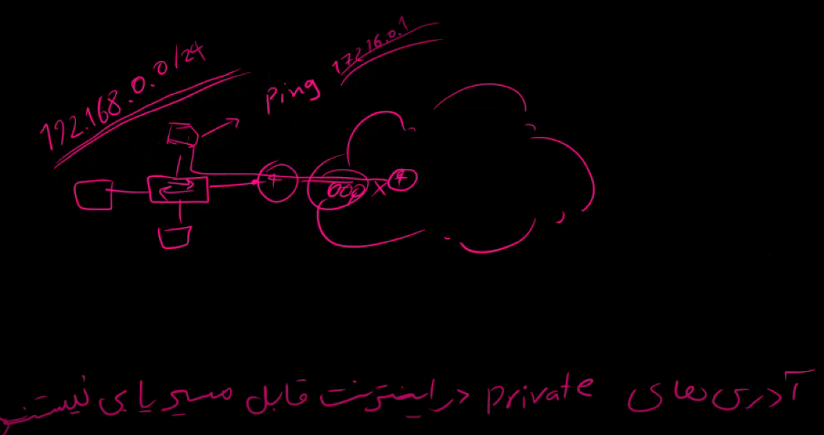 192.168.0.0/24
Ping 172.16.0.1
آدرس های private در اینترنت قابل مسیریابی نیستند